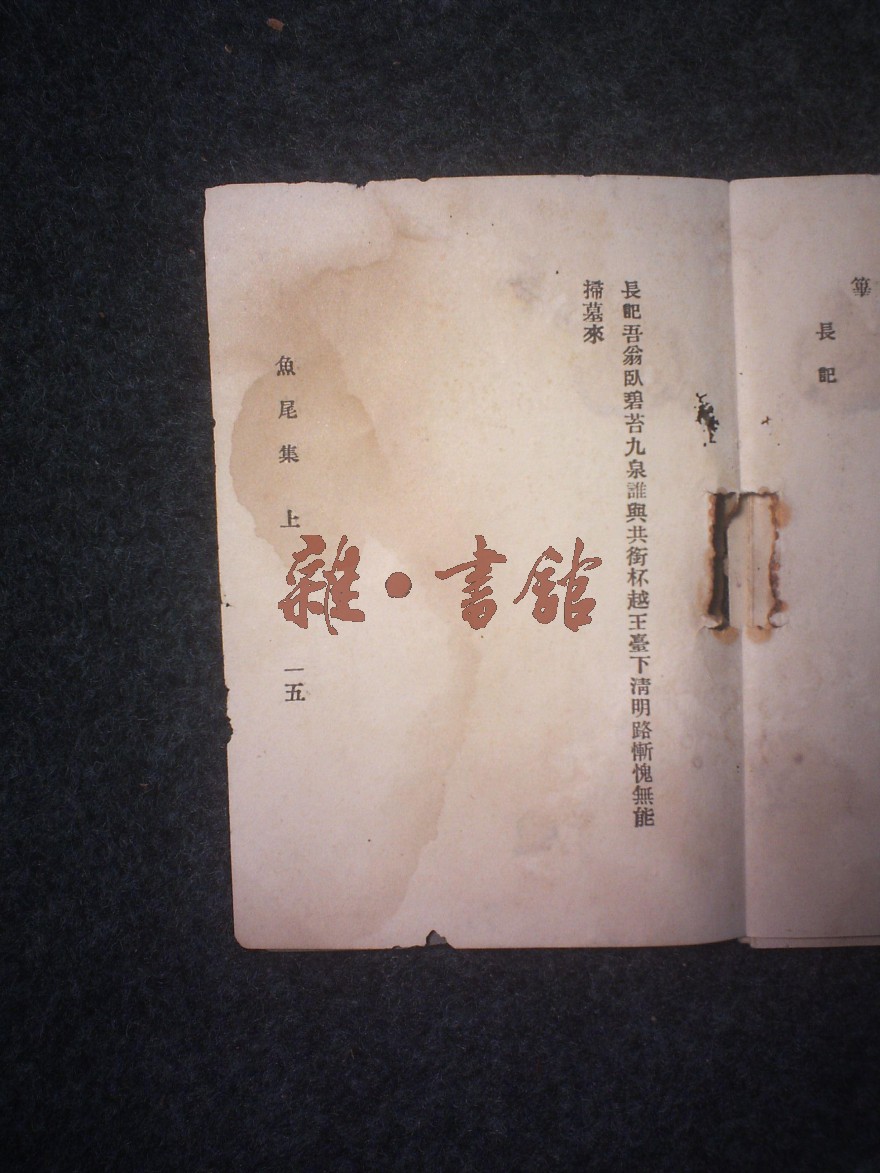 箏
長記
長記吾翁臥碧苔九泉誰與共銜杯越王臺下清明路慚愧無能
掃墓來
魚尾集 上 一五
雜·書館